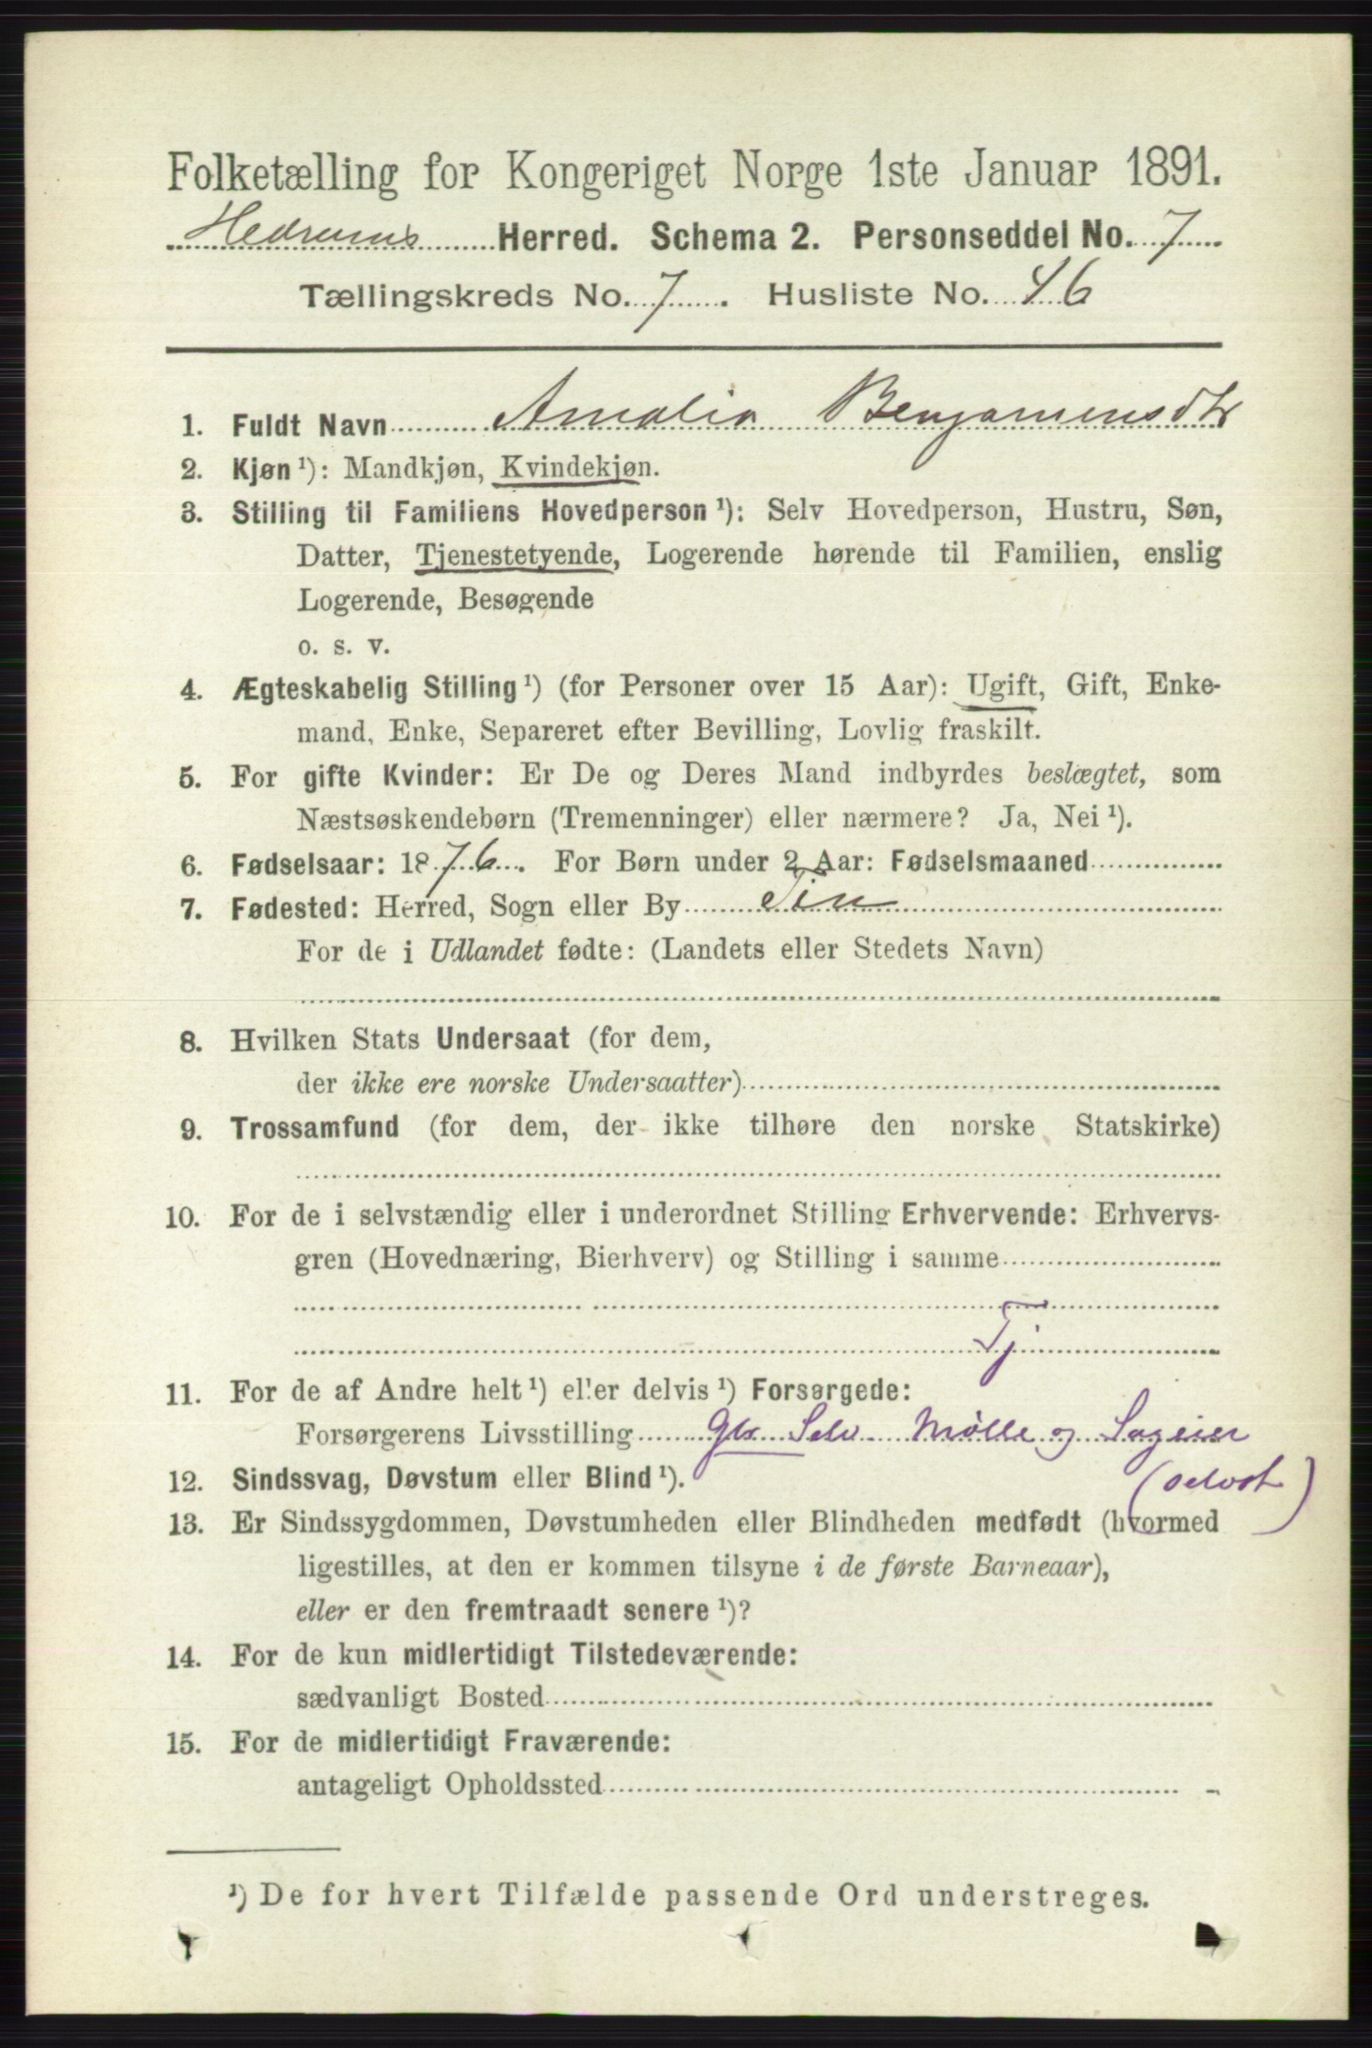 Folketælling for Kongeriget Norge 1ste Januar 1891.
Hedrums Herred. Schema 2. Personseddel No. 7
Tællingskreds No. 7. Husliste No. 46
1. Fuldt Navn Amalia Benjamensdtr
2. Kjøn ¹): Mandkjøn, Kvindekjøn.
3. Stilling til Familiens Hovedperson ¹): Selv Hovedperson, Hustru, Søn,
Datter, Tjenestetyende, Logerende hørende til Familien, enslig
Logerende, Besøgende
o. s. v.
4. Ægteskabelig Stilling ¹) (for Personer over 15 Aar): Ugift, Gift, Enke-
mand, Enke, Separeret efter Bevilling, Lovlig fraskilt.
5. For gifte Kvinder: Er De og Deres Mand indbyrdes beslægtet, som
Næstsøskendebørn (Tremenninger) eller nærmere? Ja, Nei ¹).
6. Fødselsaar: 1876. For Børn under 2 Aar: Fødselsmaaned
7. Fødested: Herred, Sogn eller By Tin
For de i Udlandet fødte: (Landets eller Stedets Navn)
8. Hvilken Stats Undersaat (for dem,
der ikke ere norske Undersaatter)
9. Trossamfund (for dem, der ikke tilhøre den norske Statskirke)
10. For de i selvstændig eller i underordnet Stilling Erhvervende: Erhvervs-
gren (Hovednæring, Bierhverv) og Stilling i samme
Tj
11. For de af Andre helt ¹) eller delvis ¹) Forsørgede:
Forsørgerens Livsstilling Gbr Selv Mølle og Sageier
(selvst)
12. Sindssvag, Døvstum eller Blind ¹).
13. Er Sindssygdommen, Døvstumheden eller Blindheden medfødt (hvormed
ligestilles, at den er kommen tilsyne i de første Barneaar),
eller er den fremtraadt senere ¹)?
14. For de kun midlertidigt Tilstedeværende:
sædvanligt Bosted
15. For de midlertidigt Fraværende:
antageligt Opholdssted
¹) De for hvert Tilfælde passende Ord understreges.